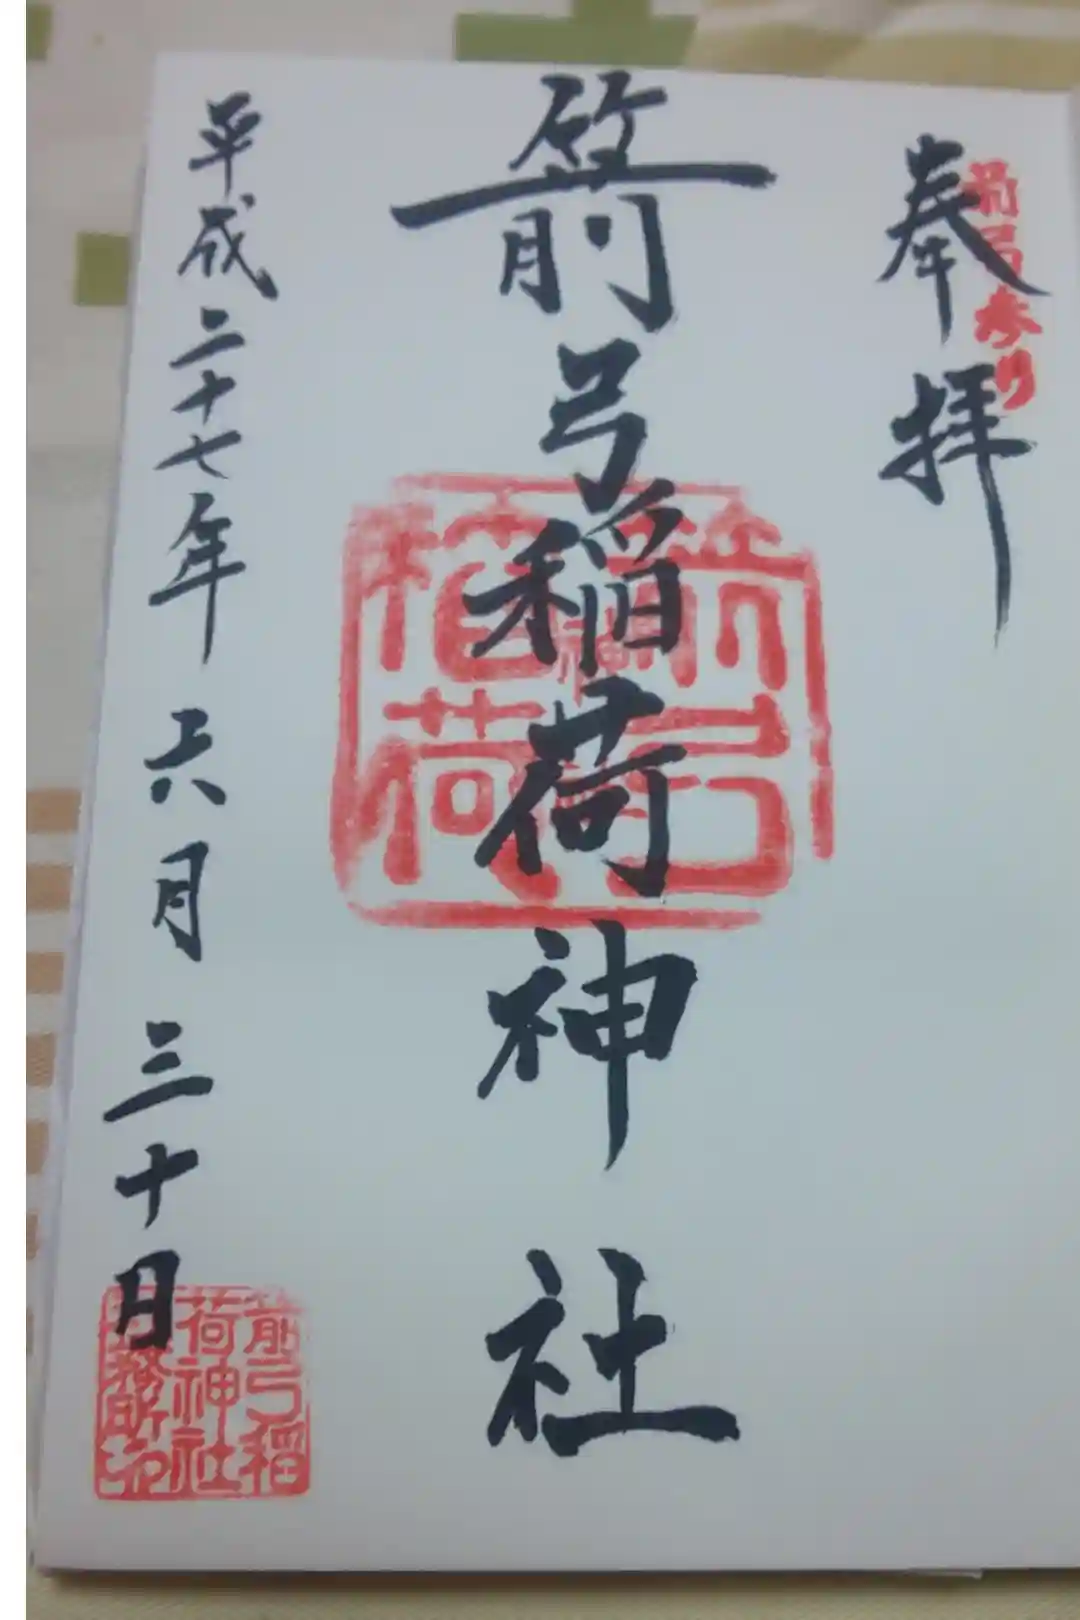 奉拝
箭弓参り
箭弓稲荷神社
箭弓稲荷
平成二十七年六月三十日
箭弓稲荷神社社務所印